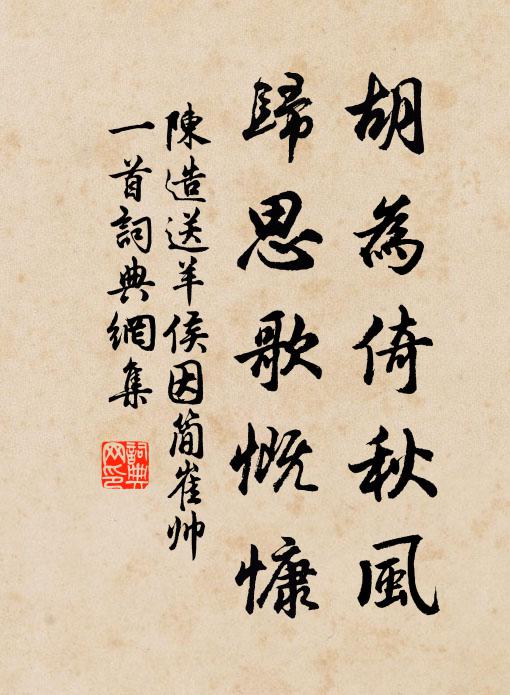 胡為倚秋風
歸思歌慨慷
陳造送羊侯因簡崔帥
一首詞典網集
詞典网印